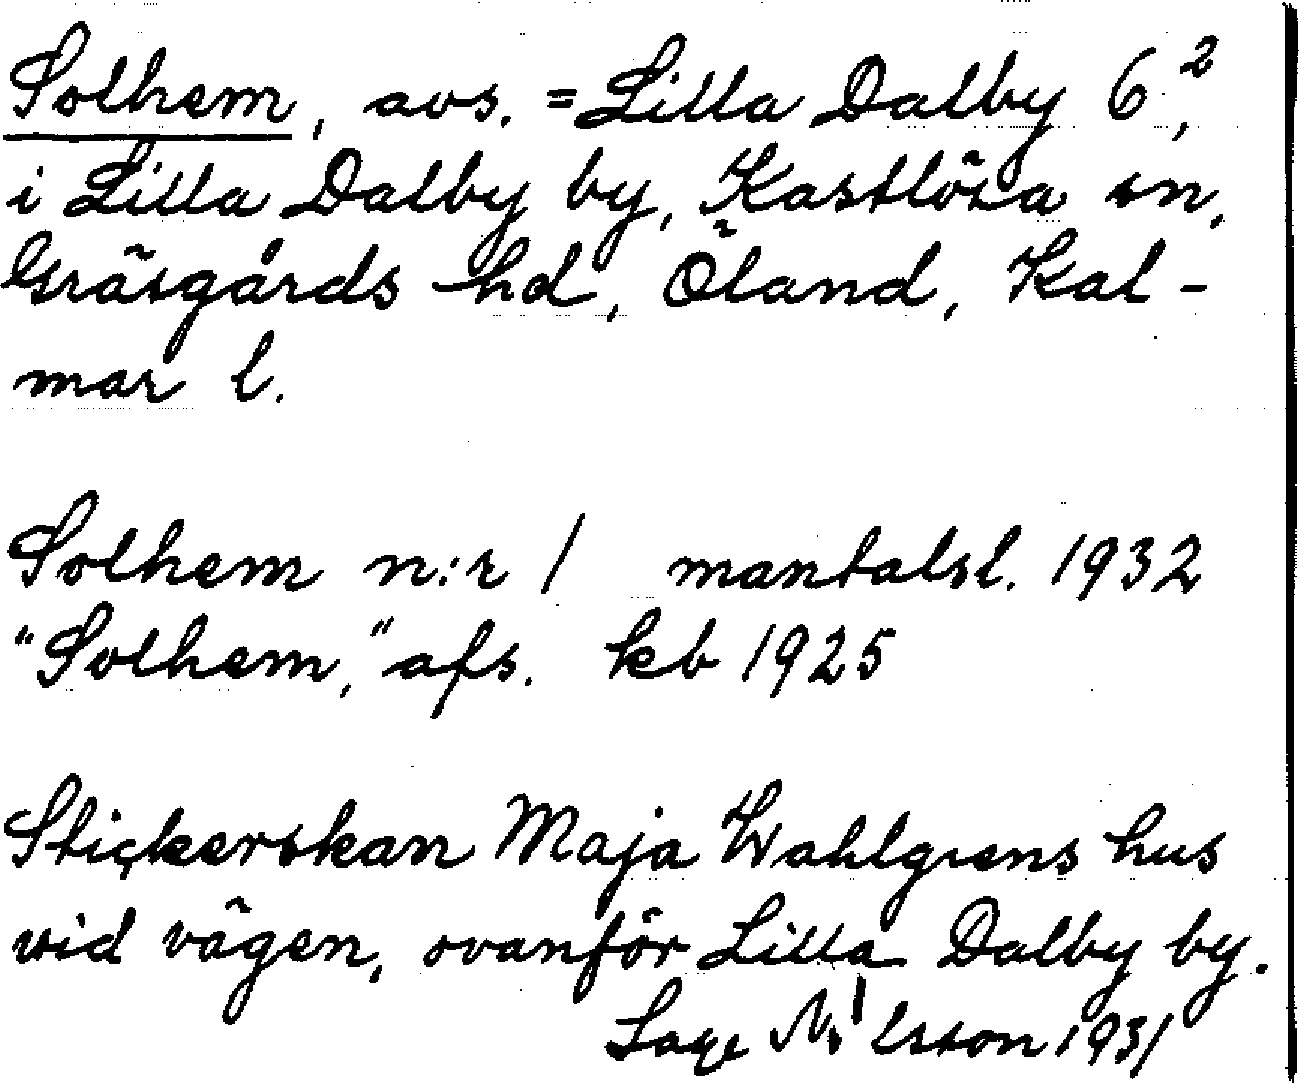 Solhem, avs. = Lilla Dalby 6²,
i Lilla Dalby by, Kastlösa sn,
Gräsgårds hd, Öland, Kal-
mar l.
Solhem n:r 1 mantalsl. 1932
"Solhem," afs. kb 1925
Stickerskan Maja Wahlgrens hus
vid vägen, ovanför Lilla Dalby by.
Lage Nilsson 1931